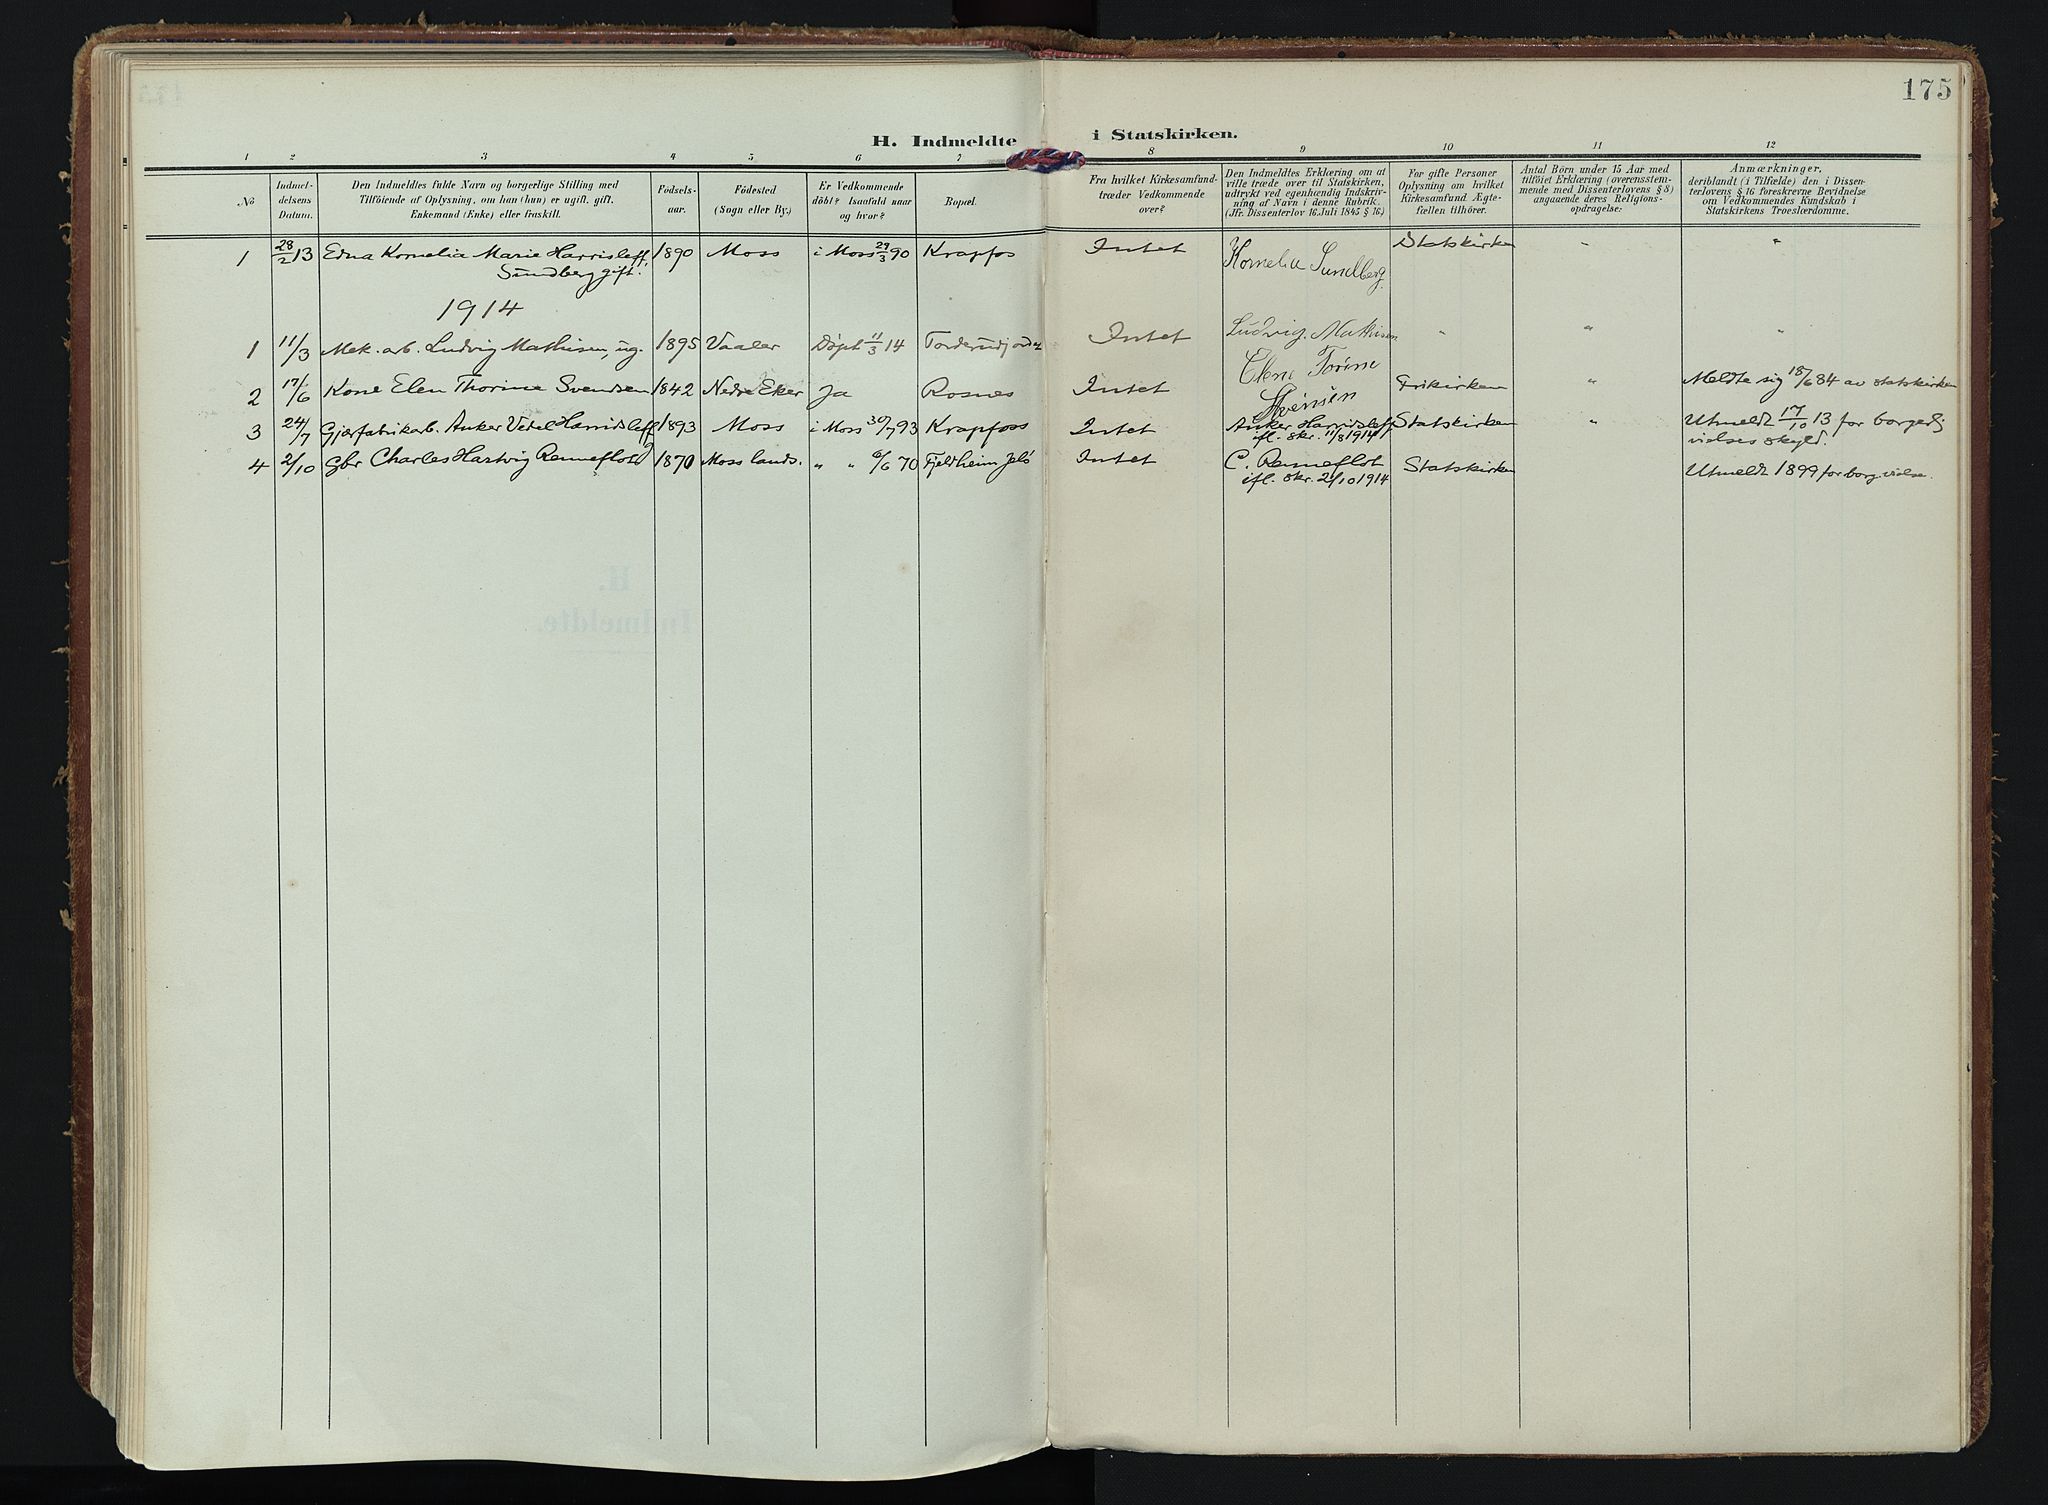 175
H. Indmeldte i Statskirken.
1 2 3 4 5 6 7 8 9 10 11 12
No
Indmel-
delsens
Datum.
Den Indmeldtes fulde Navn og borgerlige Stilling med
Tilföiende af Oplysning, om han (hun) er ugift, gift,
Enkemand (Enke) eller fraskilt.
Födsels-
aar.
Födested
(Sogn eller By.)
Er Vedkommende
döbt? Isaafald naar
og hvor?
Bopæl.
Fra hvilket Kirkesamfund-
træder Vedkommende
over?
Den Indmeldtes Erklæring om at
ville træde over til Statskirken,
udtrykt ved egenhændig Indskriv-
ning af Navn i denne Rubrik.
(Jfr. Dissenterlov 16. Juli 1845 § 16)
For gifte Personer
Oplysning om hvilket
Kirkesamfund Ægte-
fællen tilhörer.
Antal Börn under 15 Aar med
tilföiet Erklæring (overensstem-
mende med Dissenterlovens § 8)
angaaende deres Religions-
opdragelse:
Anmærkninger,
deriblandt (i Tilfælde) den i Dissen-
terlovens § 16 foreskrevne Bevidnelse
om Vedkommendes Kundskab i
Statskirkens Troeslærdomme.
1 28/2 13 Edna Kornelia Marie Harrisleff, 1890 Moss i Moss 29/3 90 Krapfos Intet Kornelia Sundberg. Statskirken " "
Sundberg gift.
1914
1 11/3 Mek. arb. Ludvig Mathisen, ug. 1895 Vaaler Döpt 11/3 14 Intet Ludvig. Mathisen " " "
2 17/6 Kone Elen Thorine Svendsen 1842 Nedre Eker Ja Rosnes Intet Elene Torine Svensen Frikirken " Meldte sig 18/6 84 av statskirken
3 24/7 Gjærfabrikarb. Anker Vedel Harridsleff 1893 Moss i Moss 30/7 93 Krapfoss Intet Anker Harridsleff Statskirken " Utmeldt 17/10 13 for borgerlig
ifl. skr. 11/8 1914 vielses skyld.
4 2/10 Gbr Charles Hartvig Renneflot 1870 Moss lands. " " 6/6 70 Fjeldheim Jelö Intet C. Renneflot Statskirken Utmeldt 1899 for borg. vielse.
ifl. skr. 2/10 1914
H.
Indmeldte.